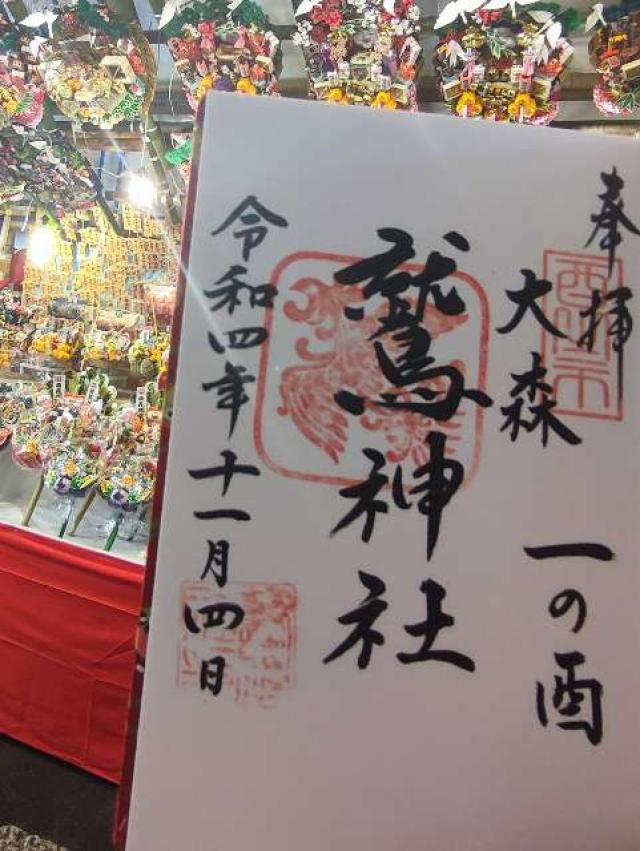 奉拝
大森
一の酉
鷲神社
令和四年十一月四日